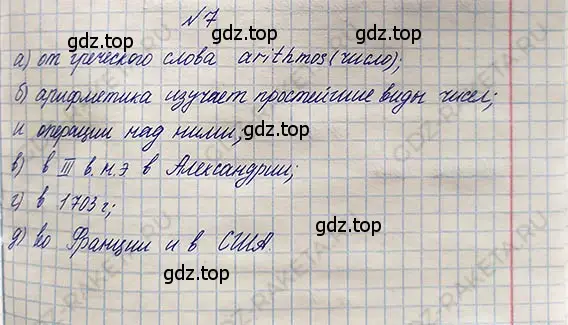 №7
gdz.top gdz.top
а) от греческого слова arithmos (число);
gdz.top
б) арифметика изучает простейшие виды чисел;
и операции над ними;
gdz.top gdz.top
в) в III в. н. э в Александрии;
г) в 1703 г;
gdz.top
д) во Франции и в США.
gdz.top